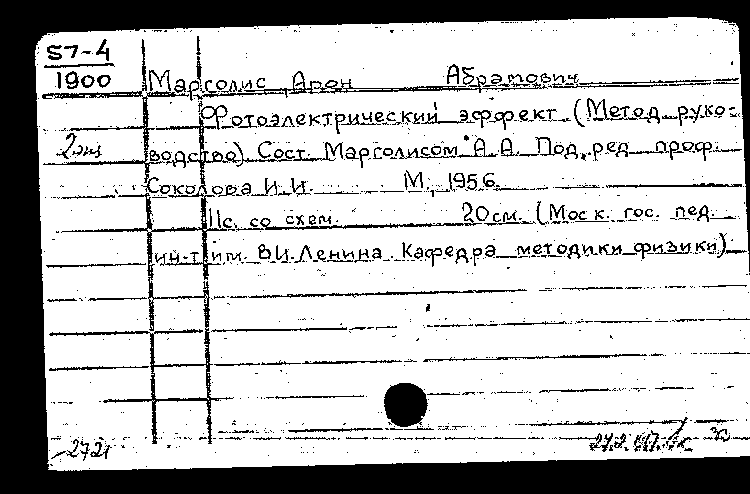 57-4
1900
Марголис Арон Абрамович
Фотоэлектрический эффект (Метод. руко-
2 экз
водство). Сост. Марголисом А.А. Под ред. проф.
Соколова И.И. М., 1956.
11с. со схем. 20см. (Моск. гос. пед.
ин-т им. В.И. Ленина. Кафедра методики физики)
2721